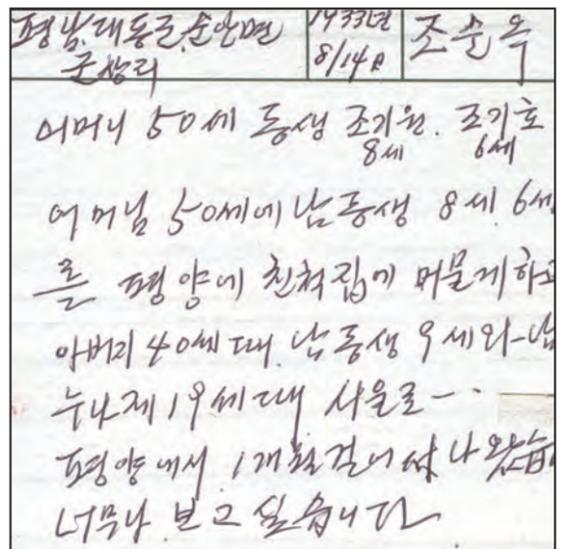 평남.대동군.순안면
군상리
1933년
8/14日
조순옥
어머니 50세 동생 조기원. 조기호
8세 6세
어머님 50세에 남동생 8세. 6세
를 평양에 친척집에 머물게하고
아버지 40세때. 남동생 9세와
누나제 19세때 서울로ㅡ··
평양에서 1개월걸어서 나왔습
너무나 보고싶습니다